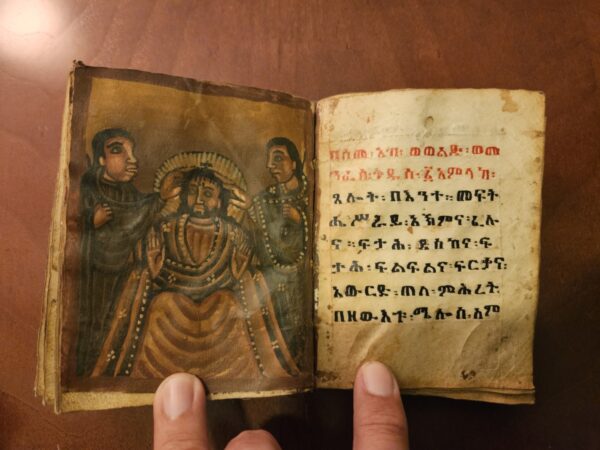 በስመ፡ አብ፡ ወወልድ፡ ወመ
ንፈስ፡ ቅዱስ፡ ፩ አምላክ፡
ጸሎት፡ በእንተ፡ መፍት
ሔ፡ ሥራይ፡ አኽምና፡ ፈሉ
ና፡ ፍታሕ፡ ደስከና፡ ፍ
ታሕ፡ ፍልፍልና፡ ፍርቃና፡
አውርድ፡ ጠለ፡ ምሕረት
በዘውእቱ፡ ሜሎስ፡ ስም